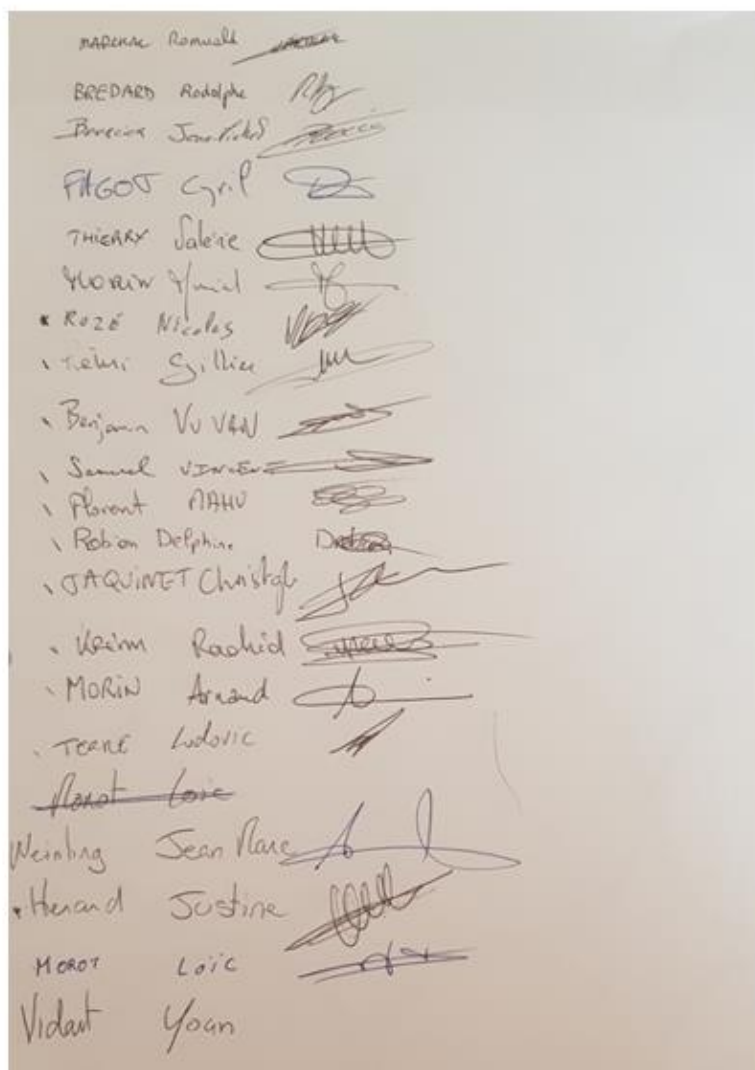 MARCHAL Romuald
BREDARD Rodolphe
Jean-Michel
FAGOT Cyril
THIERRY Valérie
MORIN
ROZÉ Nicolas
Benjamin VU VAN
Samuel VINCENT
Florent MAHU
Robon Delphine
JAQUINET Christoph
Krimm Rachid
MORIN Arnaud
TERRE Ludovic
Morot Loic
Jean Marc
Henard Justine
MOROT Loïc
Vidart Yoan